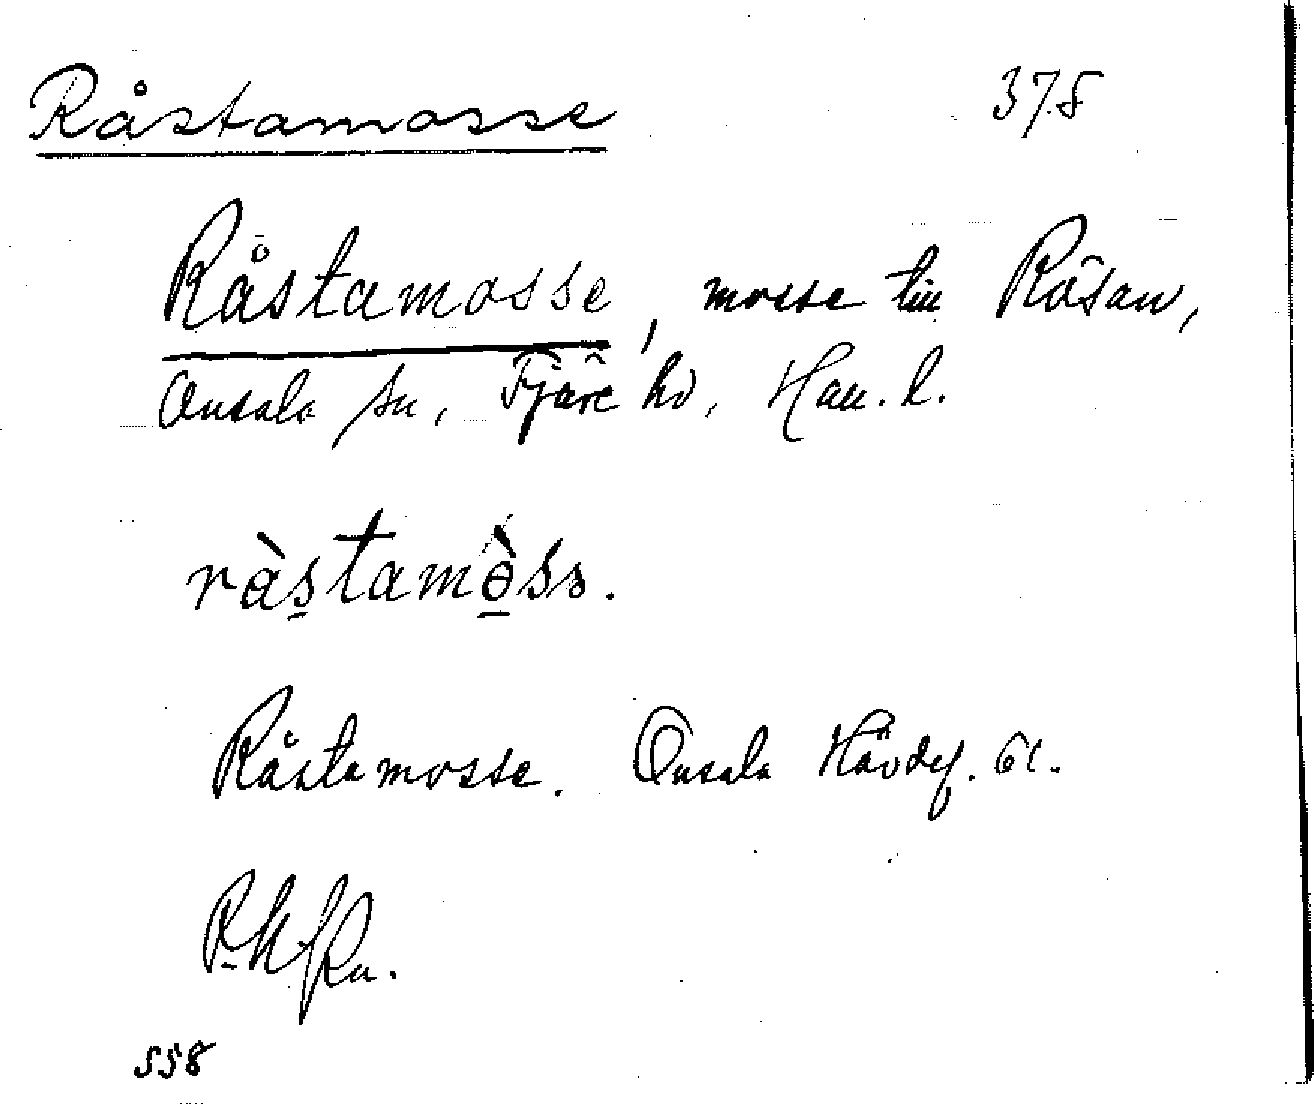 Råstamosse 378
Råstamosse, mosse till Råsan,
Onsala sn, Fjäre hd, Hall. l.
ràs̠tamò̠ss.
Råstamosse. Onsala Hävdef. 61.
558